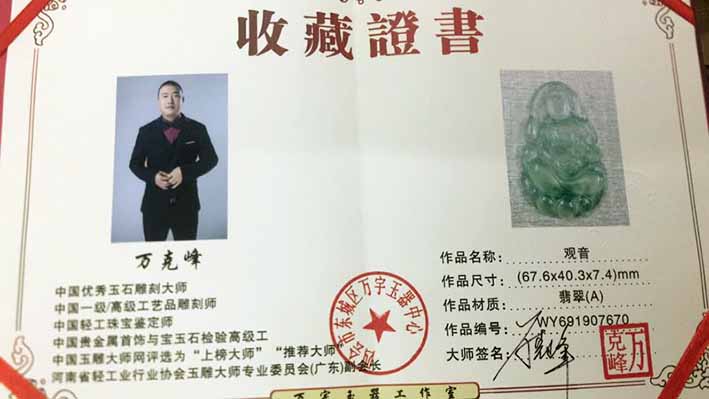 收藏證書
万克峰
中国优秀玉石雕刻大师
中国一级/高级工艺品雕刻师
中国轻工珠宝鉴定师
中国贵金属首饰与宝玉石检验高级工
中国玉雕大师网评选为“上榜大师”“推荐大师”
河南省轻工业行业协会玉雕大师专业委员会(广东)副会长
四会市东城区万字玉器中心
作品名称: 观音
作品尺寸: (67.6x40.3x7.4)mm
作品材质: 翡翠(A)
作品编号: WY691907670
大师签名: 万克峰
万克峰
万字玉器工作室